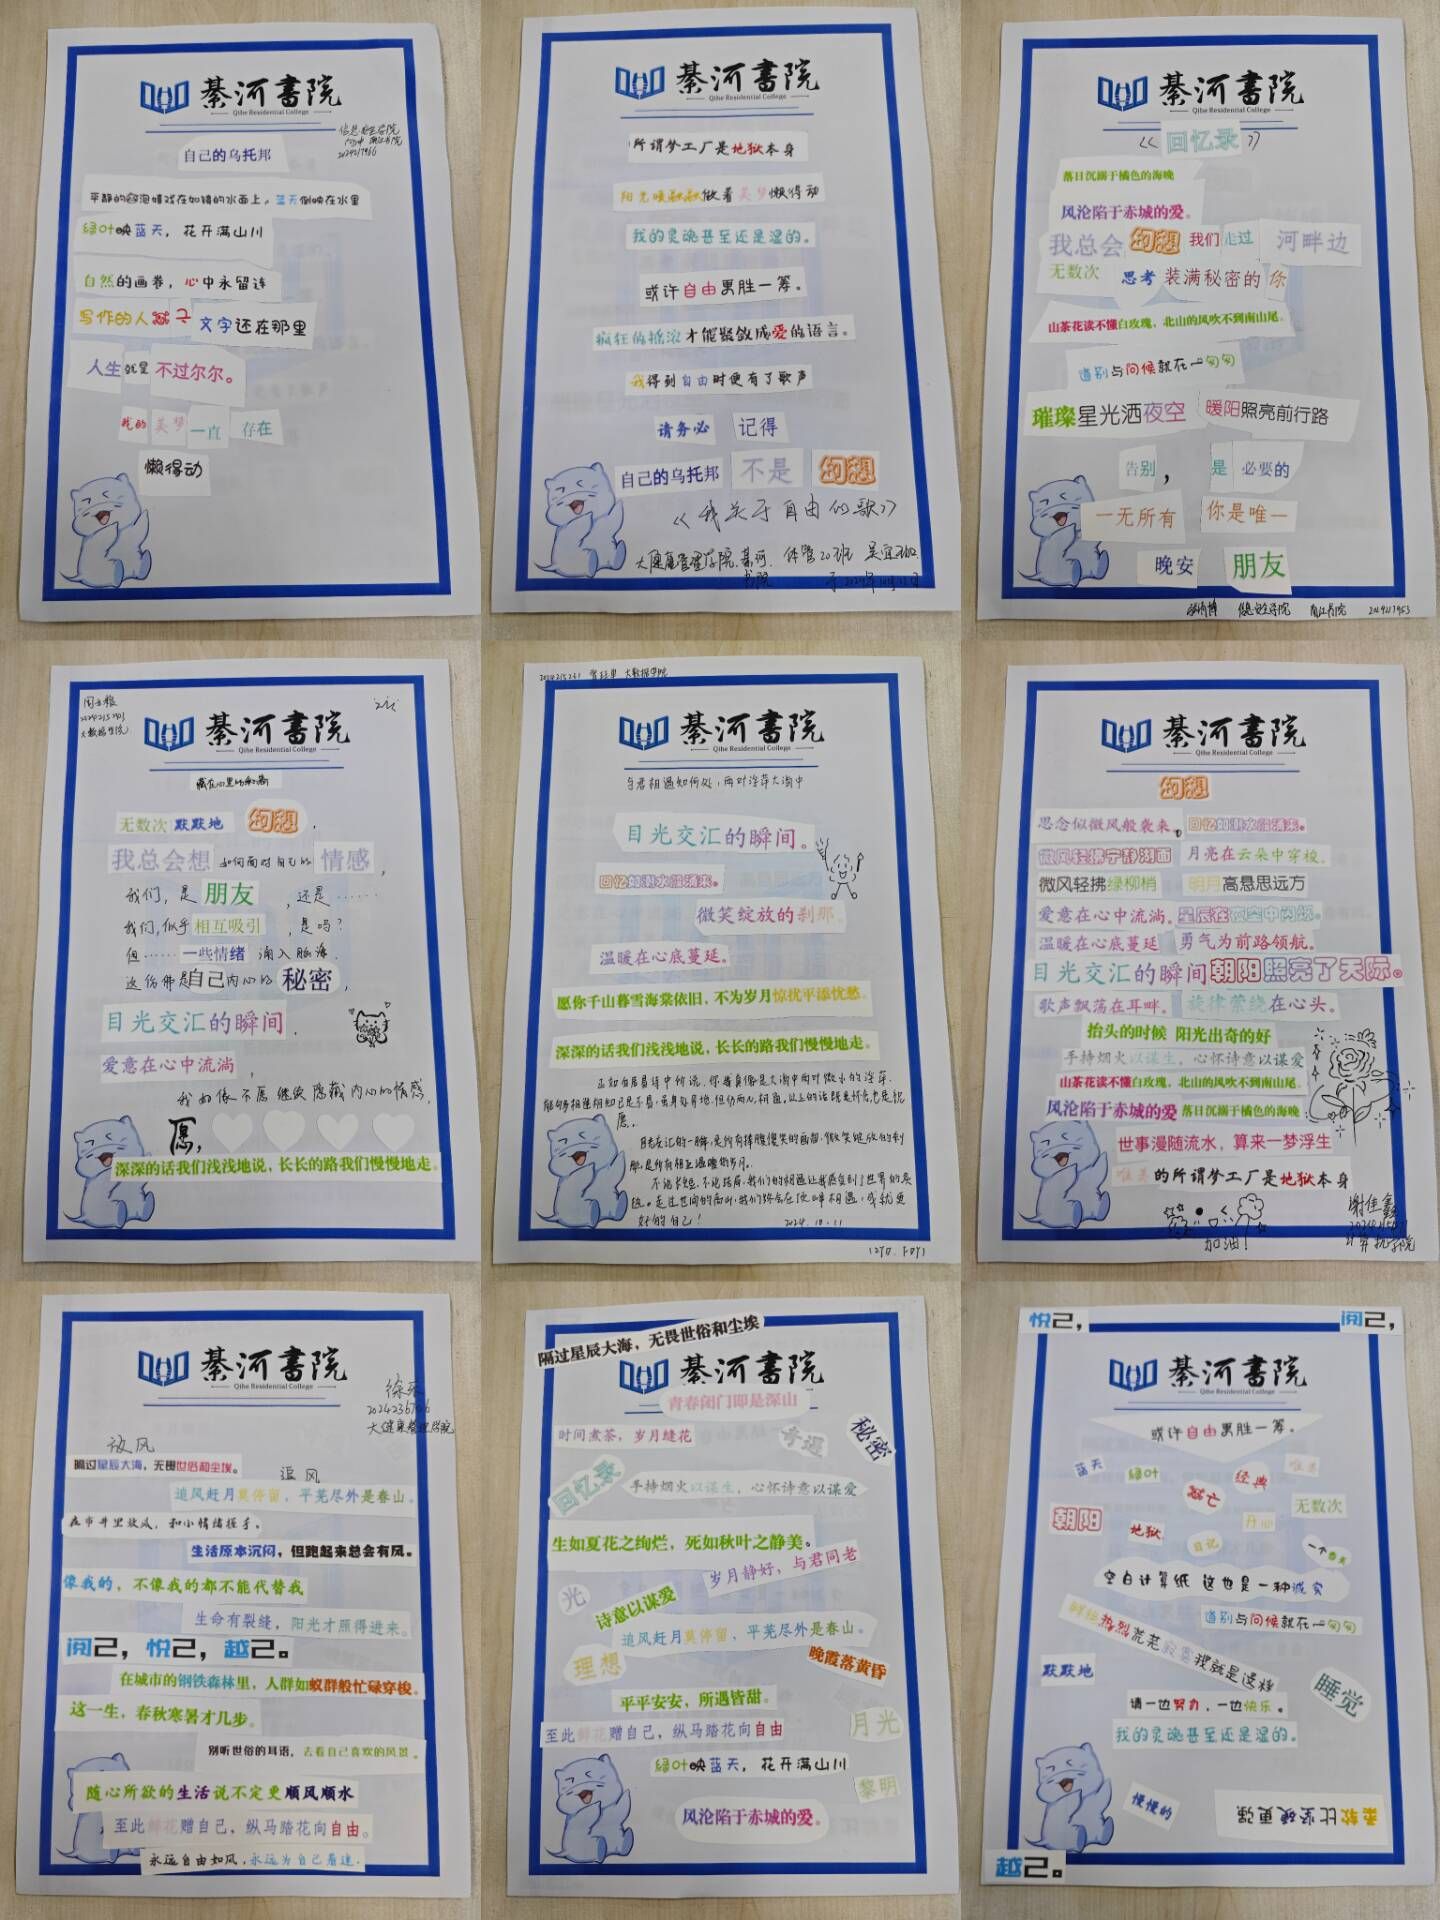 綦河書院
Qihe Residential College
自己的乌托邦
平静的 泡嬉戏在如镜的水面上，蓝天倒映在水里
绿叶映蓝天，花开满山川
自然的画卷，心中永留连
写作的人 文字还在那里
人生就是不过尔尔。
我的美梦一直存在
懒得动
綦河書院
Qihe Residential College
所谓梦工厂是地狱本身
阳光暖融融做着美梦懒得动
我的灵魂甚至还是湿的。
或许自由果胜一筹。
疯狂的摇滚才能聚敛成爱的语言。
我得到自由时便有了歌声
请务必 记得
自己的乌托邦 不是 幻想
《我关于自由的歌》
大健康管理学院 綦河书院 体管20班
綦河書院
Qihe Residential College
《回忆录》
落日沉溺于橘色的海晚
风沦陷于赤城的爱。
我总会幻想我们走过河畔边
无数次 思考 装满秘密的你
山茶花读不懂白玫瑰，北山的风吹不到南山尾。
道别与问候就在一句句
璀璨星光洒夜空 暖阳照亮前行路
告别，是必要的
一无所有 你是唯一
晚安 朋友
2024217953
大数据学院
綦河書院
Qihe Residential College
藏在心里的秘密
无数次默默地幻想，
我总会想如何面对自己的情感，
我们，是朋友，还是……
我们，似乎相互吸引，是吗？
但……一些情绪涌入脑海
这仿佛是自己内心的秘密，
目光交汇的瞬间，
爱意在心中流淌，
我好像不愿继续隐藏内心的情感，
愿，
深深的话我们浅浅地说，长长的路我们慢慢地走。
大数据学院
綦河書院
Qihe Residential College
与君相遇知何处，两叶浮萍大海中
目光交汇的瞬间。
回忆如潮水般涌来。
微笑绽放的刹那。
温暖在心底蔓延。
愿你千山暮雪海棠依旧，不为岁月惊扰平添忧愁。
深深的话我们浅浅地说，长长的路我们慢慢地走。
2024.10.11
綦河書院
Qihe Residential College
幻想
思念似微风般袭来，回忆如潮水般涌来。
微风轻拂宁静湖面 月亮在云朵中穿梭。
微风轻拂绿柳梢 明月高悬思远方
爱意在心中流淌。星辰在夜空中闪烁。
温暖在心底蔓延 勇气为前路领航。
目光交汇的瞬间朝阳照亮了天际。
歌声飘荡在耳畔。旋律萦绕在心头。
抬头的时候 阳光出奇的好
手持烟火以谋生，心怀诗意以谋爱
山茶花读不懂白玫瑰，北山的风吹不到南山尾。
风沦陷于赤城的爱 落日沉溺于橘色的海晚
世事漫随流水，算来一梦浮生
唯美的所谓梦工厂是地狱本身
加油！
谢佳鑫
计算机学院
綦河書院
Qihe Residential College
大健康管理学院
放风
隔过星辰大海，无畏世俗和尘埃。
追风
追风赶月莫停留，平芜尽外是春山。
在市井里放风，和小情绪握手。
生活原本沉闷，但跑起来总会有风。
像我的，不像我的都不能代替我
生命有裂缝，阳光才照得进来。
阅己，悦己，越己。
在城市的钢铁森林里，人群如蚁群般忙碌穿梭。
这一生，春秋寒暑才几步。
别听世俗的耳语，去看自己喜欢的风景。
随心所欲的生活说不定更顺风顺水
至此鲜花赠自己，纵马踏花向自由。
永远自由如风，永远为自己着迷。
隔过星辰大海，无畏世俗和尘埃
綦河書院
青春闭门即是深山
时间煮茶，岁月缝花 奇遇 秘密
回忆录
手持烟火以谋生，心怀诗意以谋爱
生如夏花之绚烂，死如秋叶之静美。
岁月静好，与君同老
光 诗意以谋爱
追风赶月莫停留，平芜尽外是春山。
理想 晚霞落黄昏
平平安安，所遇皆甜。
至此鲜花赠自己，纵马踏花向自由 月光
绿叶映蓝天，花开满山川
黎明
风沦陷于赤城的爱。
悦己， 阅己，
綦河書院
Qihe Residential College
或许自由果胜一筹。
蓝天 绿叶 经典 唯美
朝阳 地狱 日记 无数次
一个春天
空白计算纸 这也是一种诚实
鲜艳热烈荒芜寂寞我就是这样
道别与问候就在一句句
默默地 睡觉
请一边努力，一边快乐。
我的灵魂甚至还是湿的。
慢慢的
柔软比坚硬更强
越己。